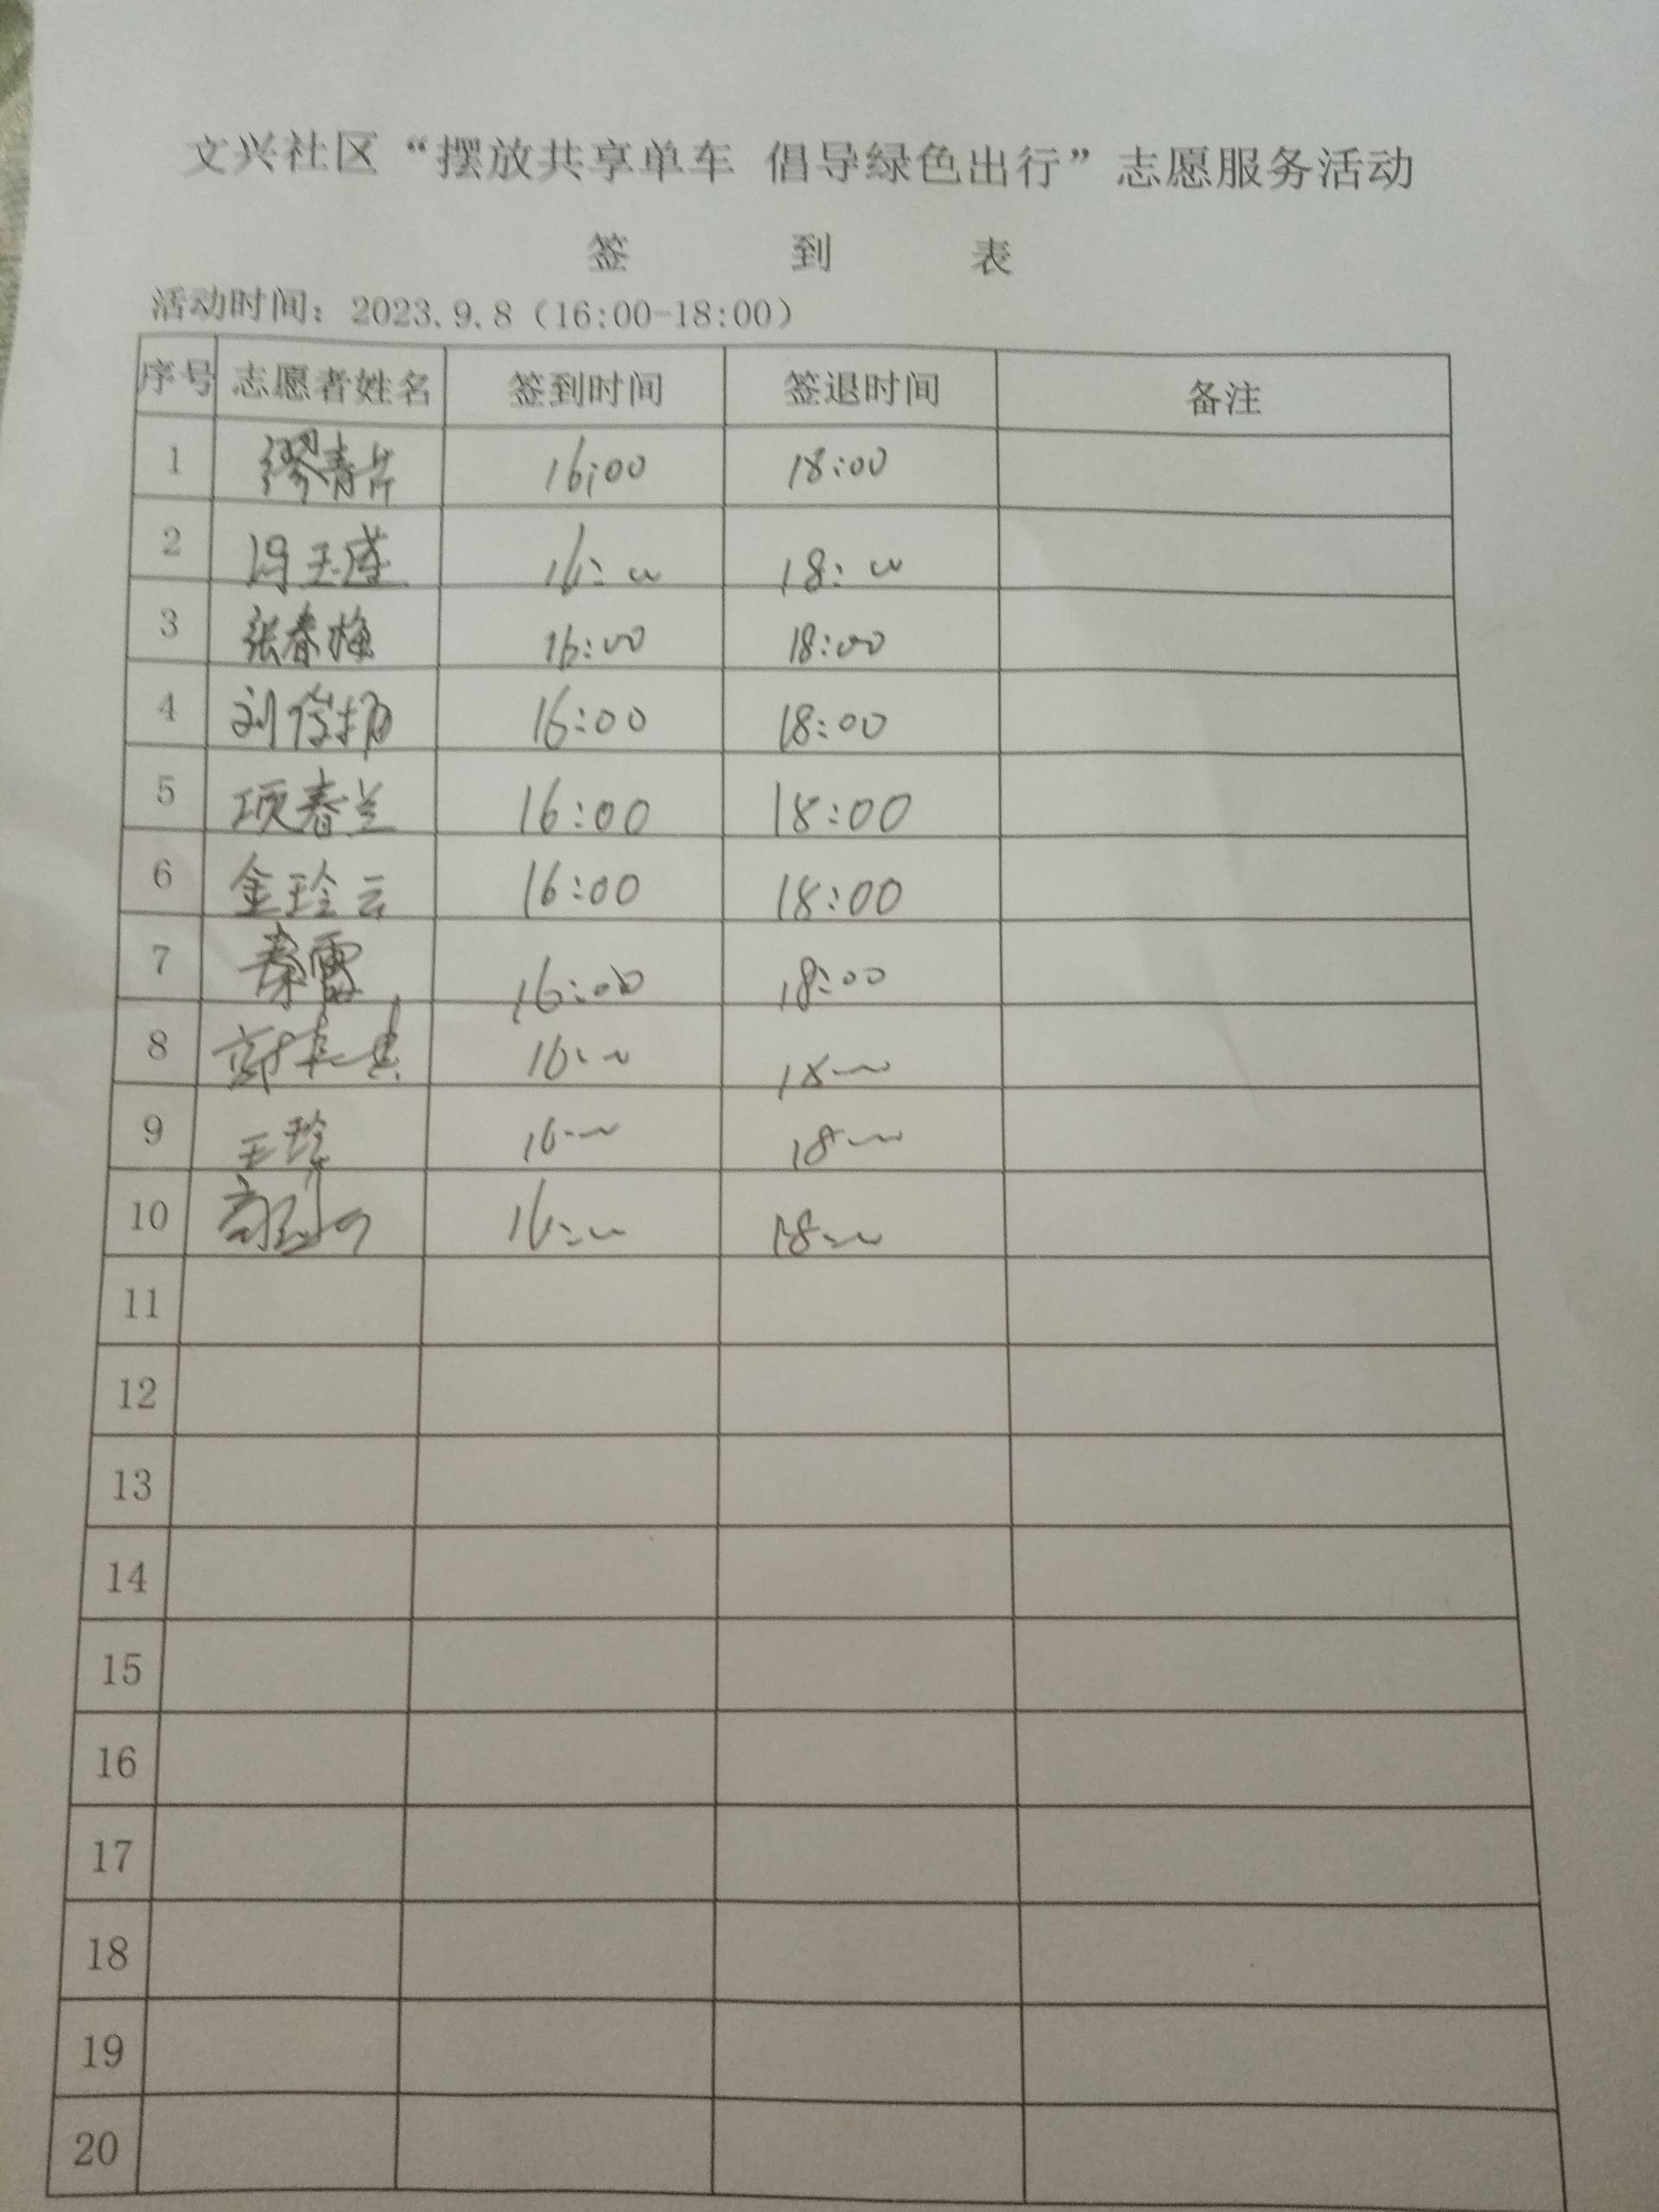 文兴社区“摆放共享单车 倡导绿色出行”志愿服务活动
签 到 表
活动时间：2023.9.8（16:00-18:00）
序号 志愿者姓名 签到时间 签退时间 备注
1 缪青 16:00 18:00
2 冯玉莲 16:00 18:00
3 张春梅 16:00 18:00
4 刘 16:00 18:00
5 项春兰 16:00 18:00
6 金玲云 16:00 18:00
7 秦雷 16:00 18:00
8 16:00 18:00
9 王玲 16:00 18:00
10 16:00 18:00
11
12
13
14
15
16
17
18
19
20